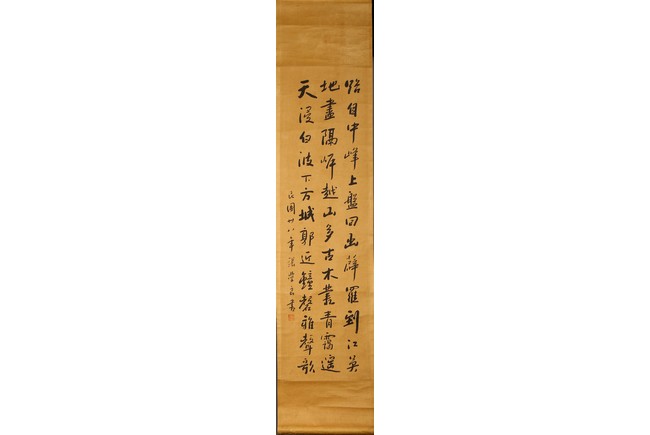 路自中峰上盤回出薜蘿到江吳
地盡隔岸越山多古木叢青靄遙
天浸白波下方城郭近鐘磬雜聲歌
民國廿八年書